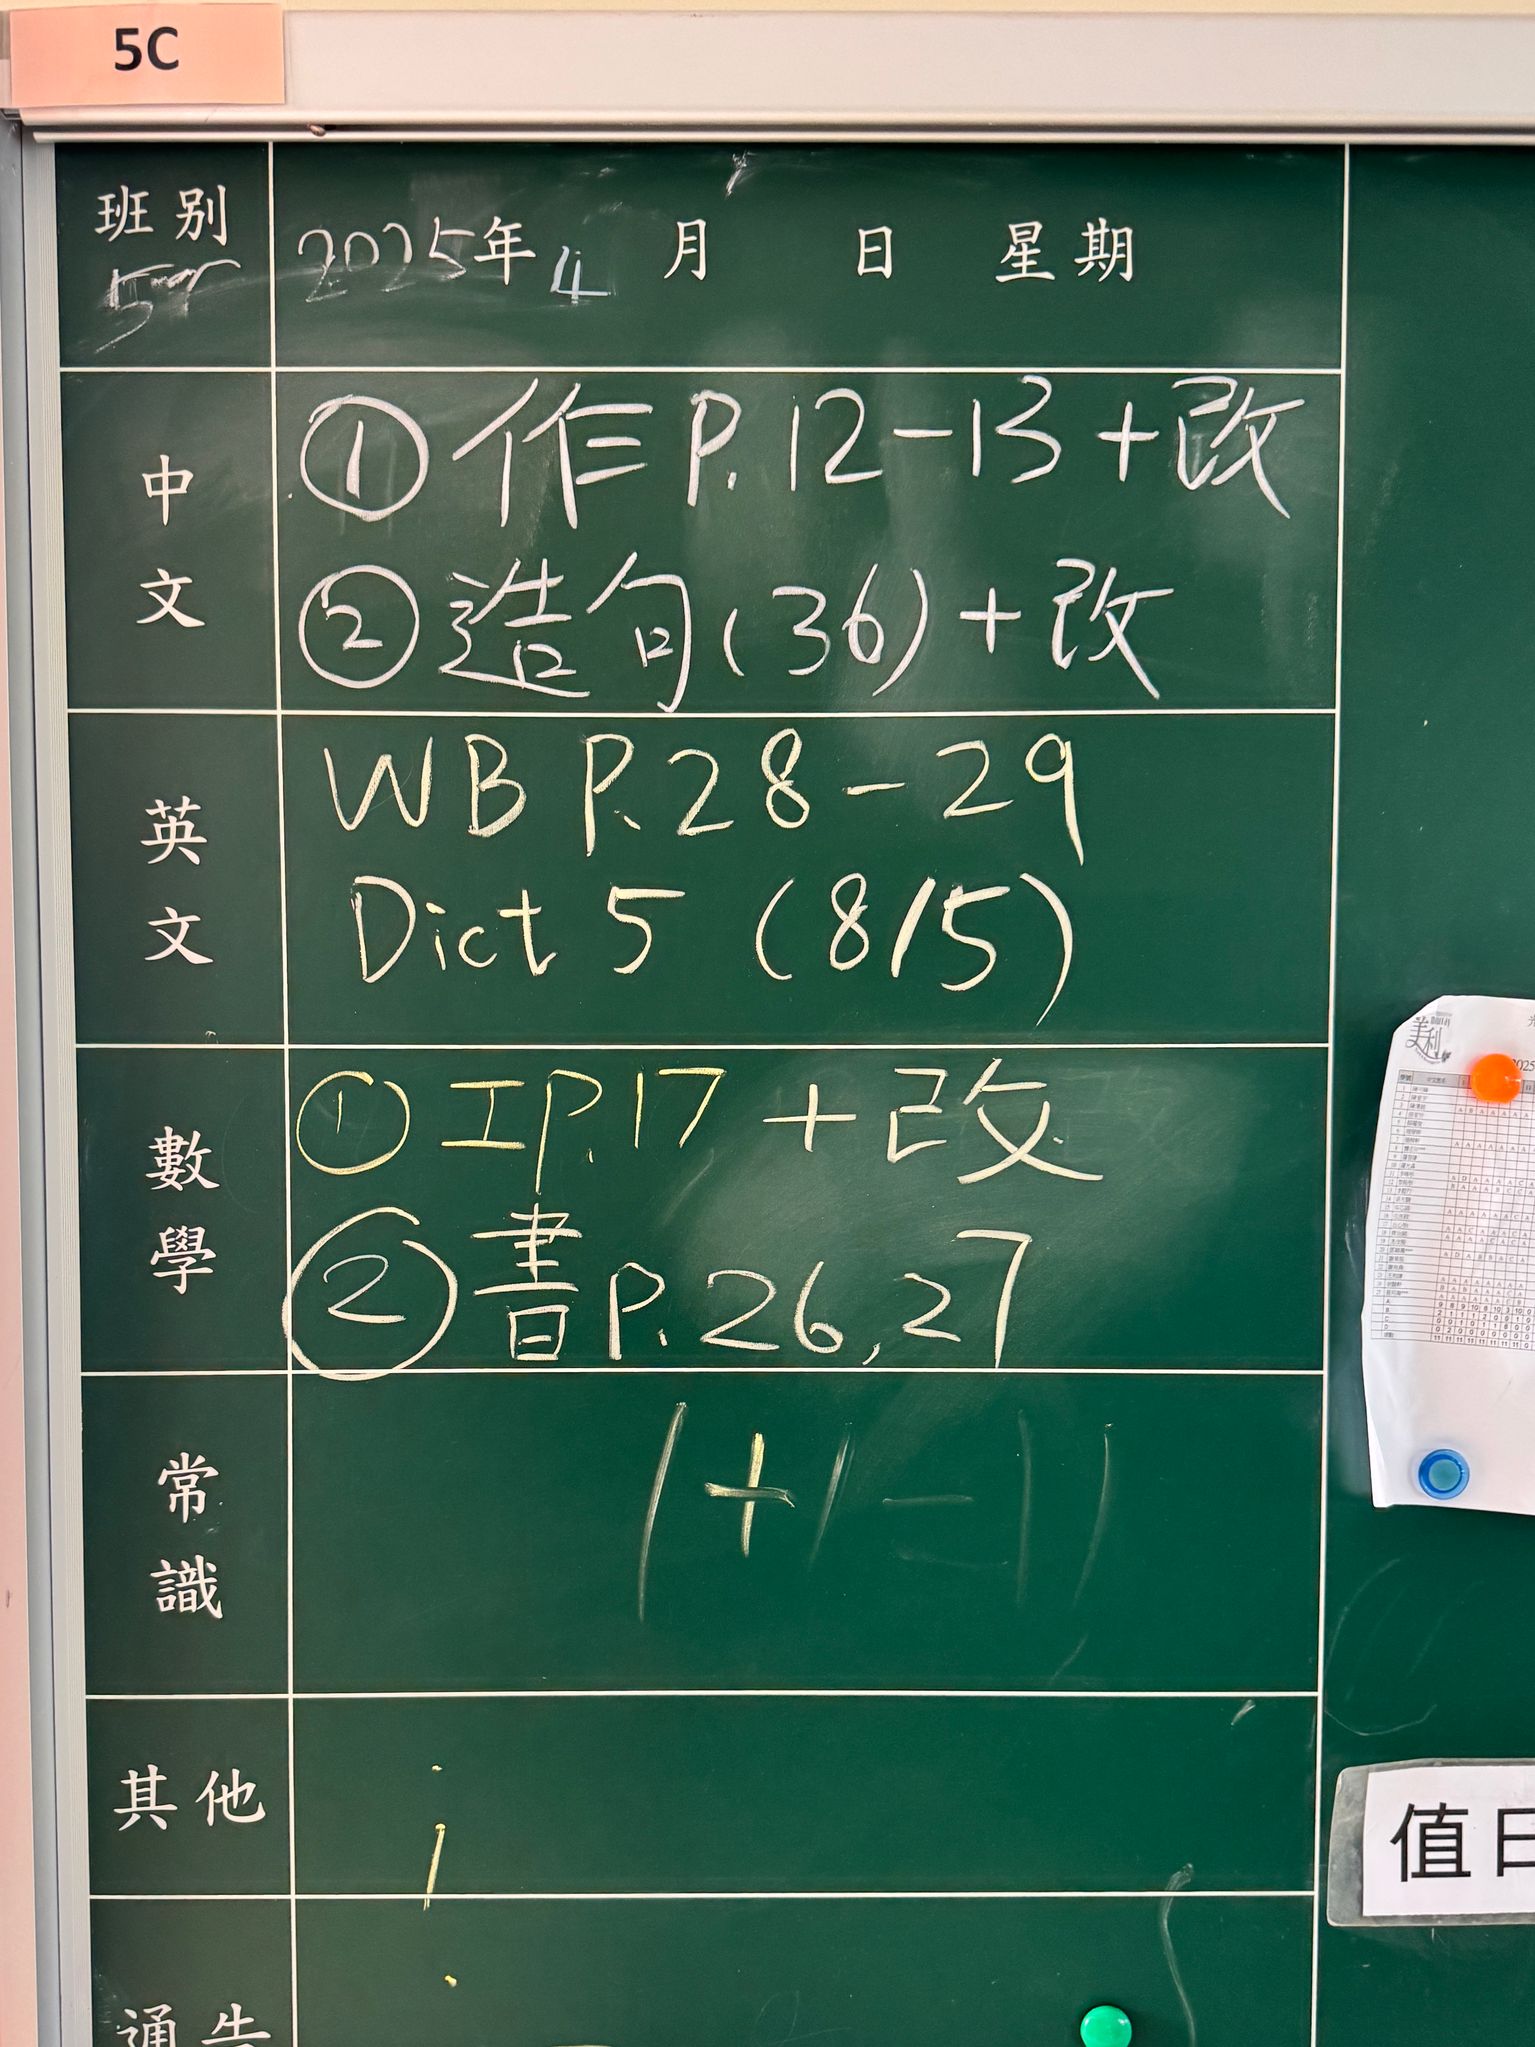 5C
班別
2025年 4 月 日 星期
中文
① 作 P.12-13 + 改
② 造句(36) + 改
英文
WB P.28-29
Dict 5 (8/5)
數學
① IP.17 + 改
② 書 P.26,27
常識
1+1-11
其他
通告
美利
2025
值日